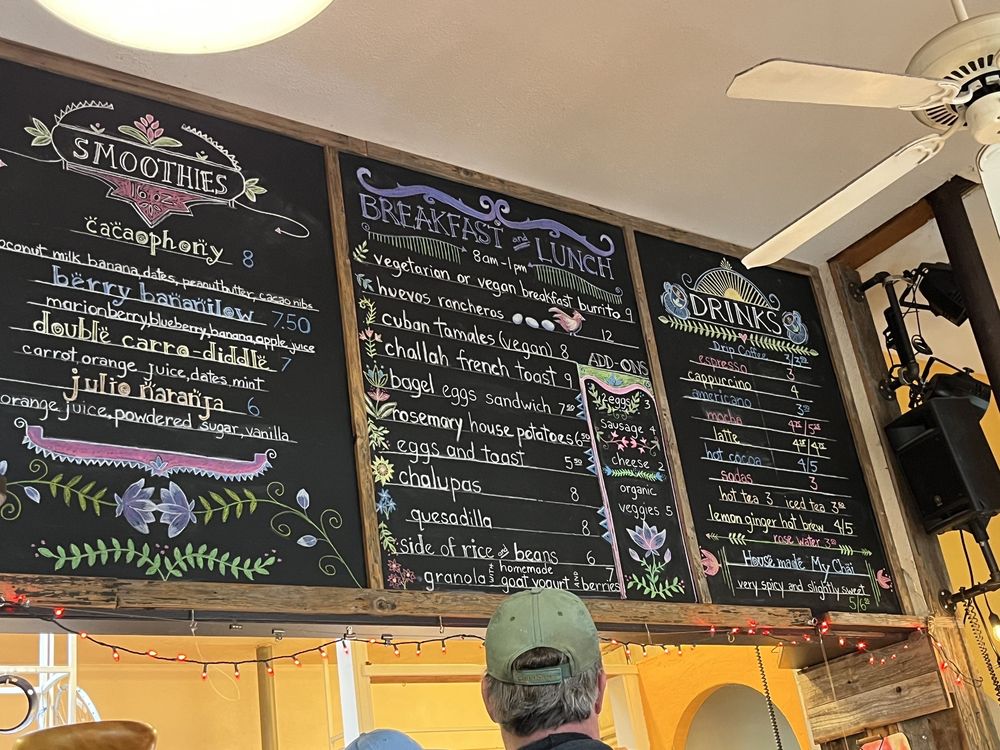 SMOOTHIES
16 oz.
cacaophony 8
coconut milk, banana, dates, peanutbutter, cacao nibs
berry bananilow 7.50
marionberry, blueberry, banana, apple juice
double carro-diddle 7
carrot, orange juice, dates, mint
julio naranja 6
orange juice, powdered sugar, vanilla
BREAKFAST and LUNCH
8am-1pm
vegetarian or vegan breakfast burrito 9
huevos rancheros 12
cuban tamales (vegan) 8
challah french toast 9
bagel eggs sandwich 7.50
rosemary house potatoes 6.50
eggs and toast 5.50
chalupas 8
quesadilla 8
side of rice and beans 6
granola with homemade goat yogurt and berries 7
ADD-ONS
eggs 3
sausage 4
cheese 2
organic
veggies 5
DRINKS
Drip Coffee 3/3.50
espresso 3
cappuccino 4
americano 3.50
mocha
latte
hot cocoa 4/5
sodas 3
hot tea 3 iced tea 3.50
lemon ginger hot brew 4/5
rose water
House made My Chai
very spicy and slightly sweet
5/6